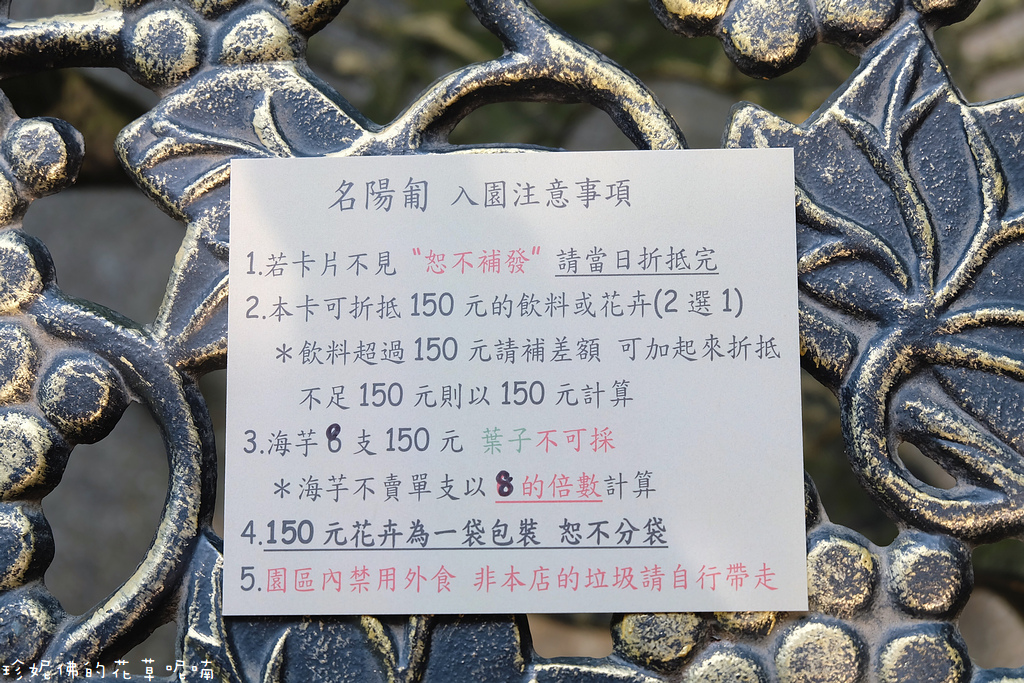 名陽匍 入園注意事項
1.若卡片不見 "恕不補發" 請當日折抵完
2.本卡可折抵 150 元的飲料或花卉(2 選 1)
＊飲料超過 150 元請補差額 可加起來折抵
不足 150 元則以 150 元計算
3.海芋 8 支 150 元 葉子不可採
＊海芋不賣單支以 8 的倍數計算
4.150 元花卉為一袋包裝 恕不分袋
5.園區內禁用外食 非本店的垃圾請自行帶走
珍妮佛的花草呢喃